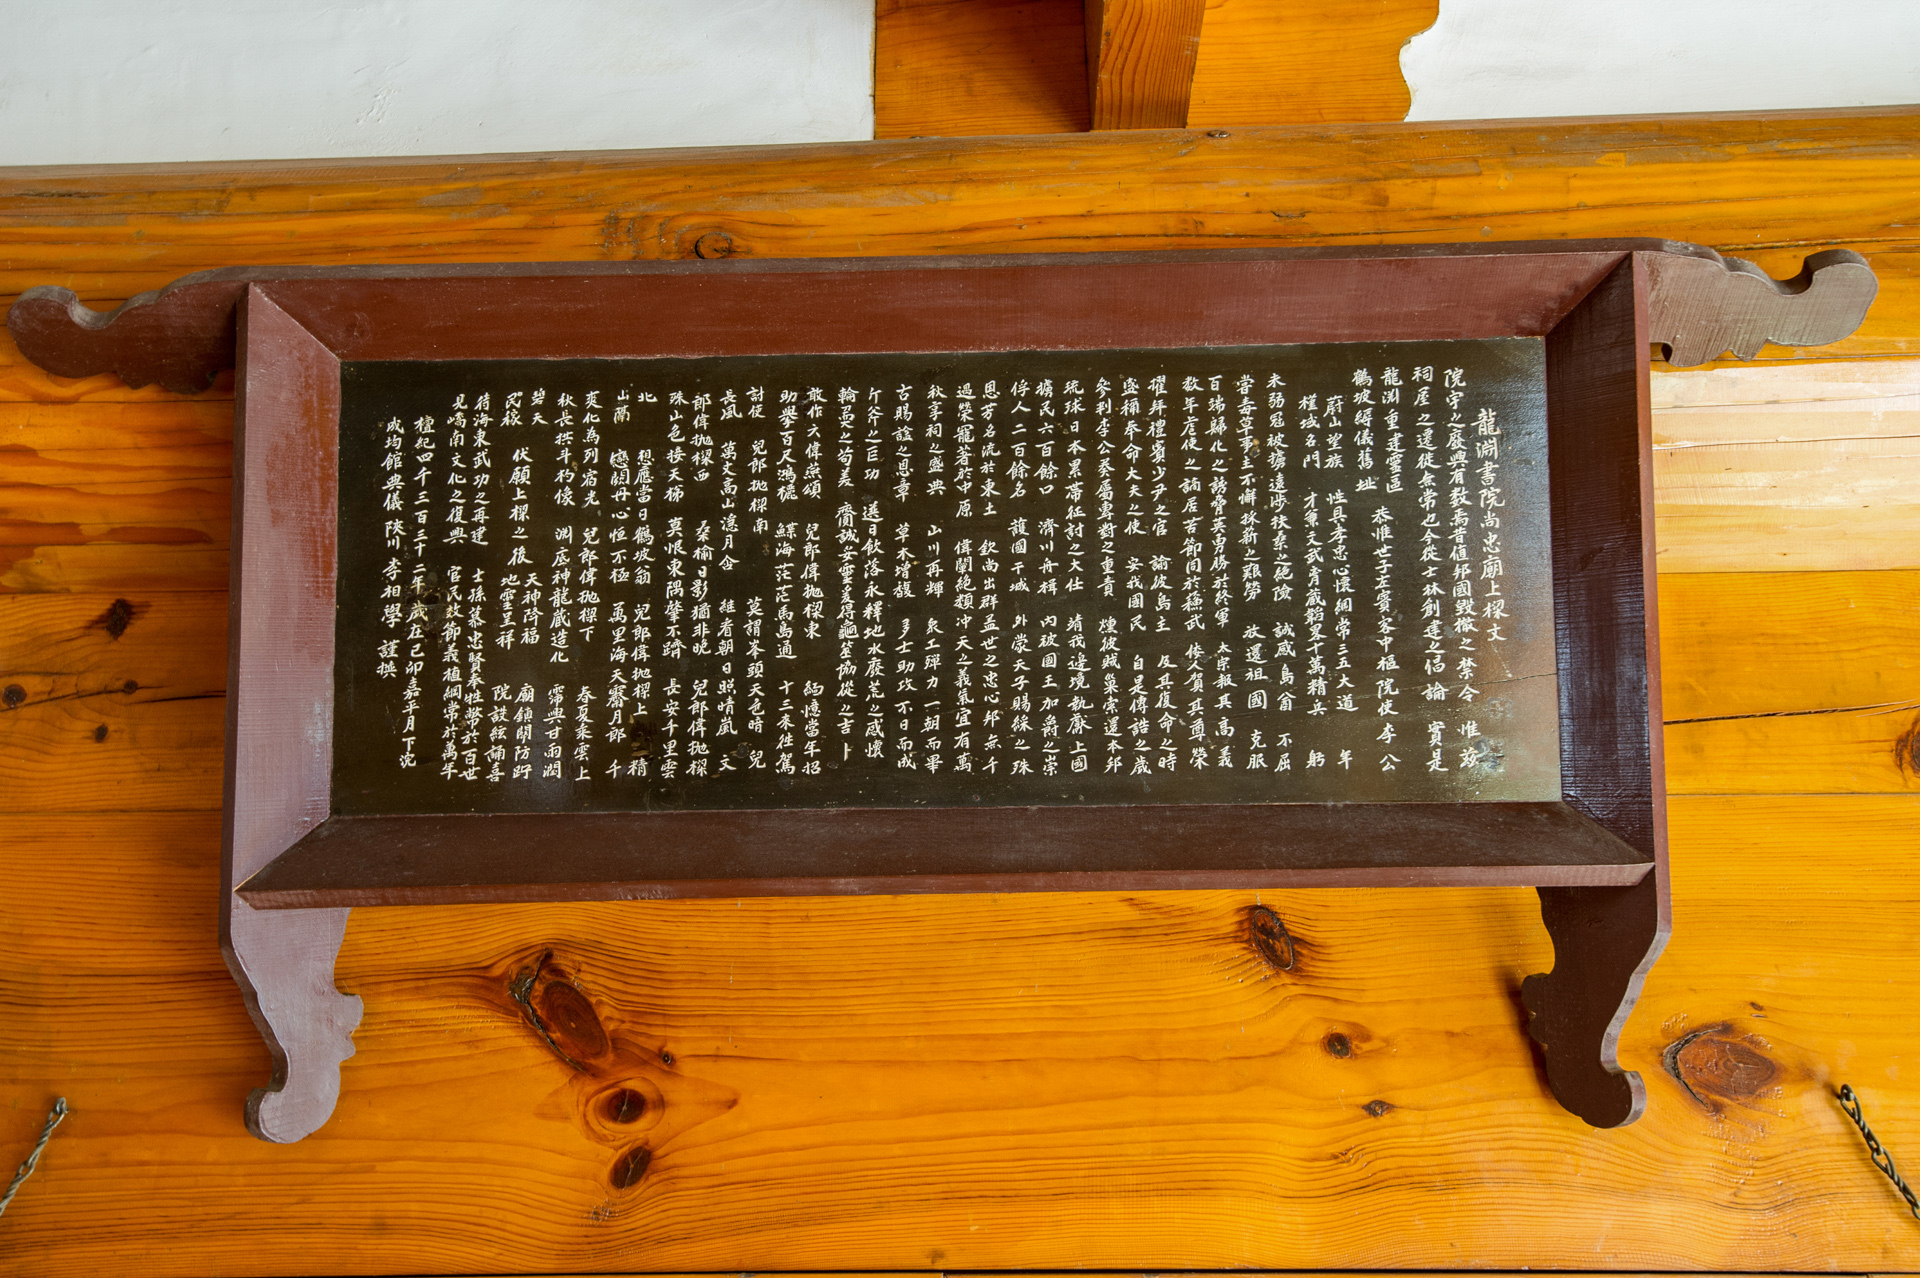 龍淵書院尚忠廟上樑文
院宇之廢興有數焉昔値邦國毁撤之禁令 惟玆
祠屋之遷徙無常也今從士林創建之倡論 實是
龍淵重建靈區 恭惟世子左賓客中樞院使李公
鶴坡縟儀舊址
蔚山望族 性具孝忠心懷綱常三五大道 年
槿域名門 才兼文武胷藏韜畧十萬精兵 躬
未弱冠被擄遠涉扶桑之絶險 誠感島酋 不屈
當毒草事主不懈採薪之艱勞 放還祖國 克服
百端歸化之誘脅英勇勝於終軍 太宗報其高義
数年虐使之訥居苦節同於蘇武 倭人賀其尊榮
擢拜禮賓少尹之官 諭彼島主 及其復命之時
盛稱奉命大夫之使 安我國民 自是傳誥之歲
參判李公藝屬專對之重責 煙彼賊巢索還本邦
琉球日本累帶征討之大仕 靖我邊境執獻上國
擄民六百餘口 濟川舟楫 內被國王加爵之崇
俘人二百餘名 護國干城 外蒙天子賜綵之殊
恩芳名流於東土 欽尚出群盖世之忠心邦無千
過榮寵著於中原 偉闡絶類冲天之義氣宜有萬
秋享祠之盛典 山川再輝 衆工殫力一朝而畢
古賜諡之恩章 草木增馥 多士助攻不日而成
斤斧之巨功 選日飮落永釋地水廢荒之感懷
輪奐之苟美 齎誠安靈爰得龜筮協從之吉卜
敢作六偉燕頌 兒郎偉抛樑東 緬憶當年招
助擧百尺鴻樑 鰈海茫茫馬島通 十三未徃駕
討便 兒郎抛樑南 莫謂峯頭天色暗 兒
長風 萬丈高山漶月含 維看朝日暎晴嵐 文
郎偉抛樑西 桑榆日影猶非晩 兒郎偉抛樑
珠山色接天梯 莫恨東隅肇不躋 長安千里雲
北 想應當日鶴坡翁 兒郎偉抛樑上 精
山隔 戀闕丹心恒不極 萬里海天霽月郎 千
爽化爲列宿光 兒郎偉抛樑下 春夏乘雲上
秋長拱斗杓像 淵底神龍藏造化 霈興甘雨潤
碧天 伏願上樑之後 天神降福 廟鎭閑防野
民稼 地靈呈祥 院設絃誦喜
荷海東武功之再建 士孫慕忠賢奉牲幣於百世
見嶠南文化之復興 官民敦節義植綱常於萬年
檀紀四千三百三十二年歲在己卯嘉平月下浣
成均館典儀 陜川 李相學 謹撰